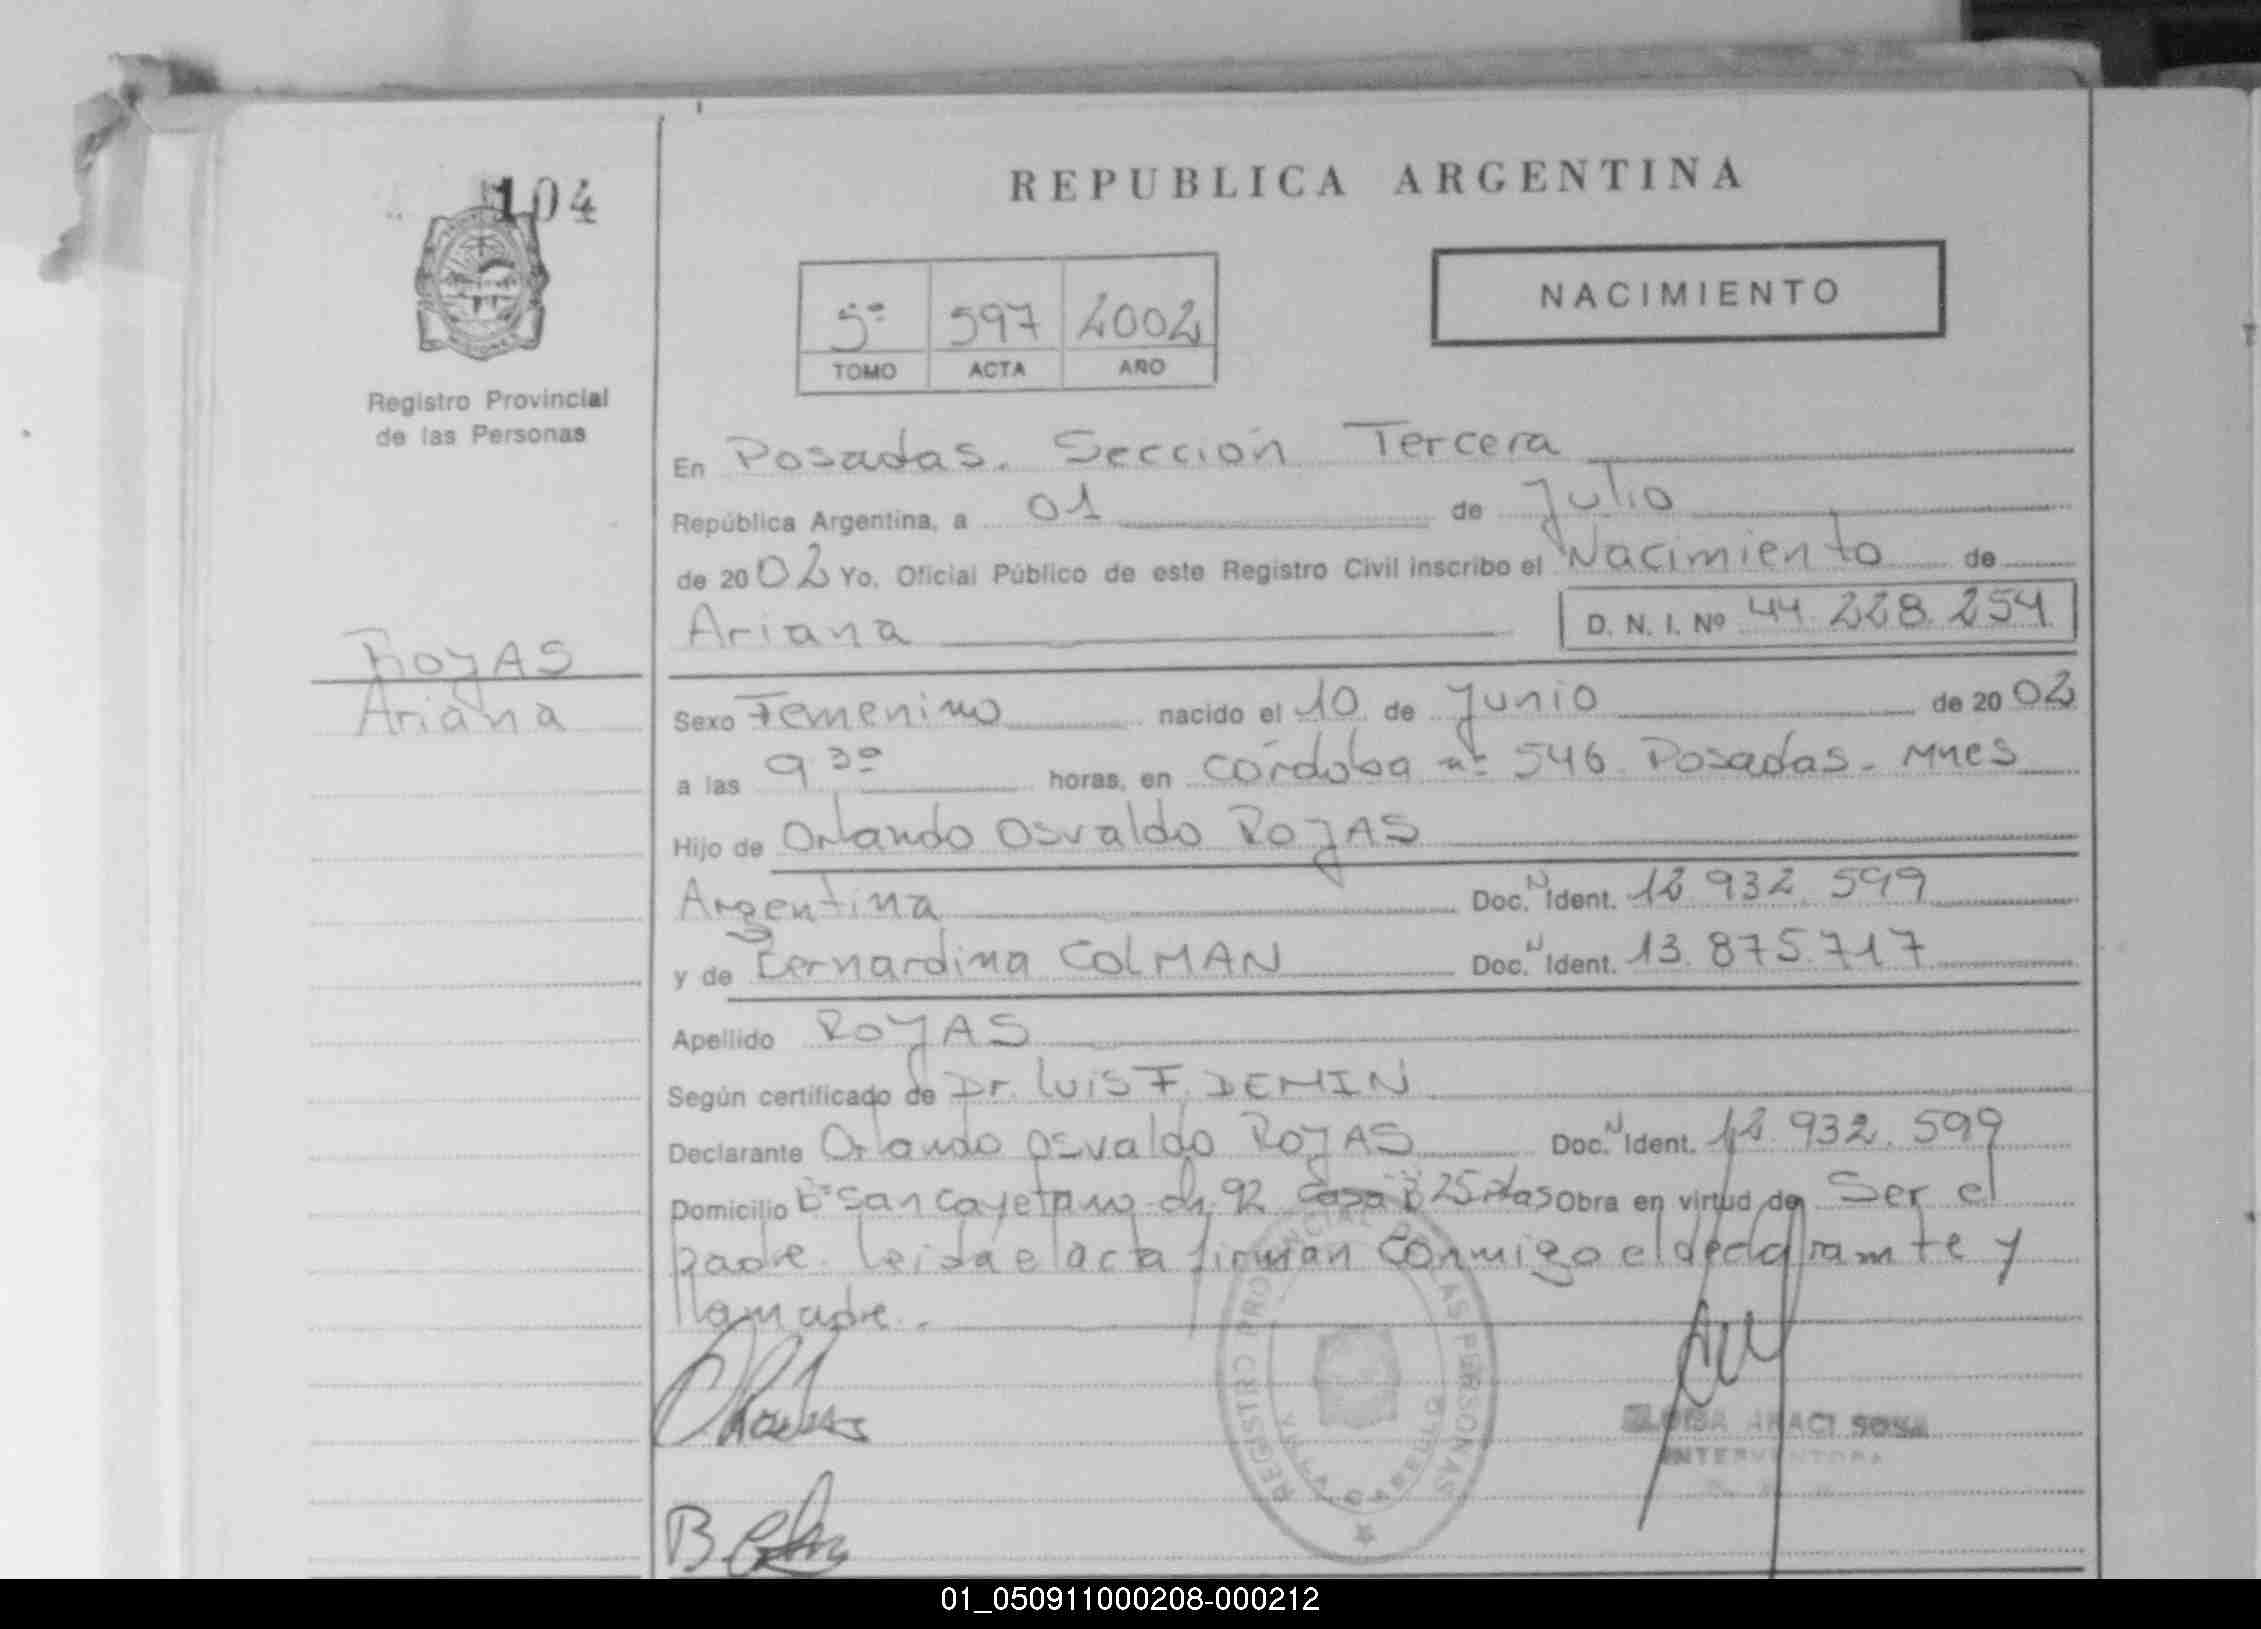 104
REPUBLICA ARGENTINA
NACIMIENTO
5º 597 2002
TOMO ACTA AÑO
Registro Provincial
de las Personas
En Posadas. Sección Tercera
República Argentina, a 01 de Julio
de 2002 Yo, Oficial Público de este Registro Civil inscribo el Nacimiento de
Ariana D. N. I. Nº 44.228.254
ROJAS
Ariana
Sexo Femenino nacido el 10 de Junio de 2002
a las 9 30 horas, en Córdoba nº 546. Posadas - Mnes
Hijo de Orlando Osvaldo ROJAS
Argentina Doc. N Ident. 12.932.599
y de Bernardina COLMAN Doc. N Ident. 13.875.717
Apellido ROJAS
Según certificado de Dr. Luis F. DEMIN
Declarante Orlando Osvaldo ROJAS Doc. N Ident. 12.932.599
Domicilio Bº San Cayetano ch. 92 Casa 25 Pdas Obra en virtud de Ser el
padre. leida el acta firman conmigo el declarante y
la madre.
REGISTRO PROVINCIAL DE LAS PERSONAS
INTERVENTORA
01_050911000208-000212